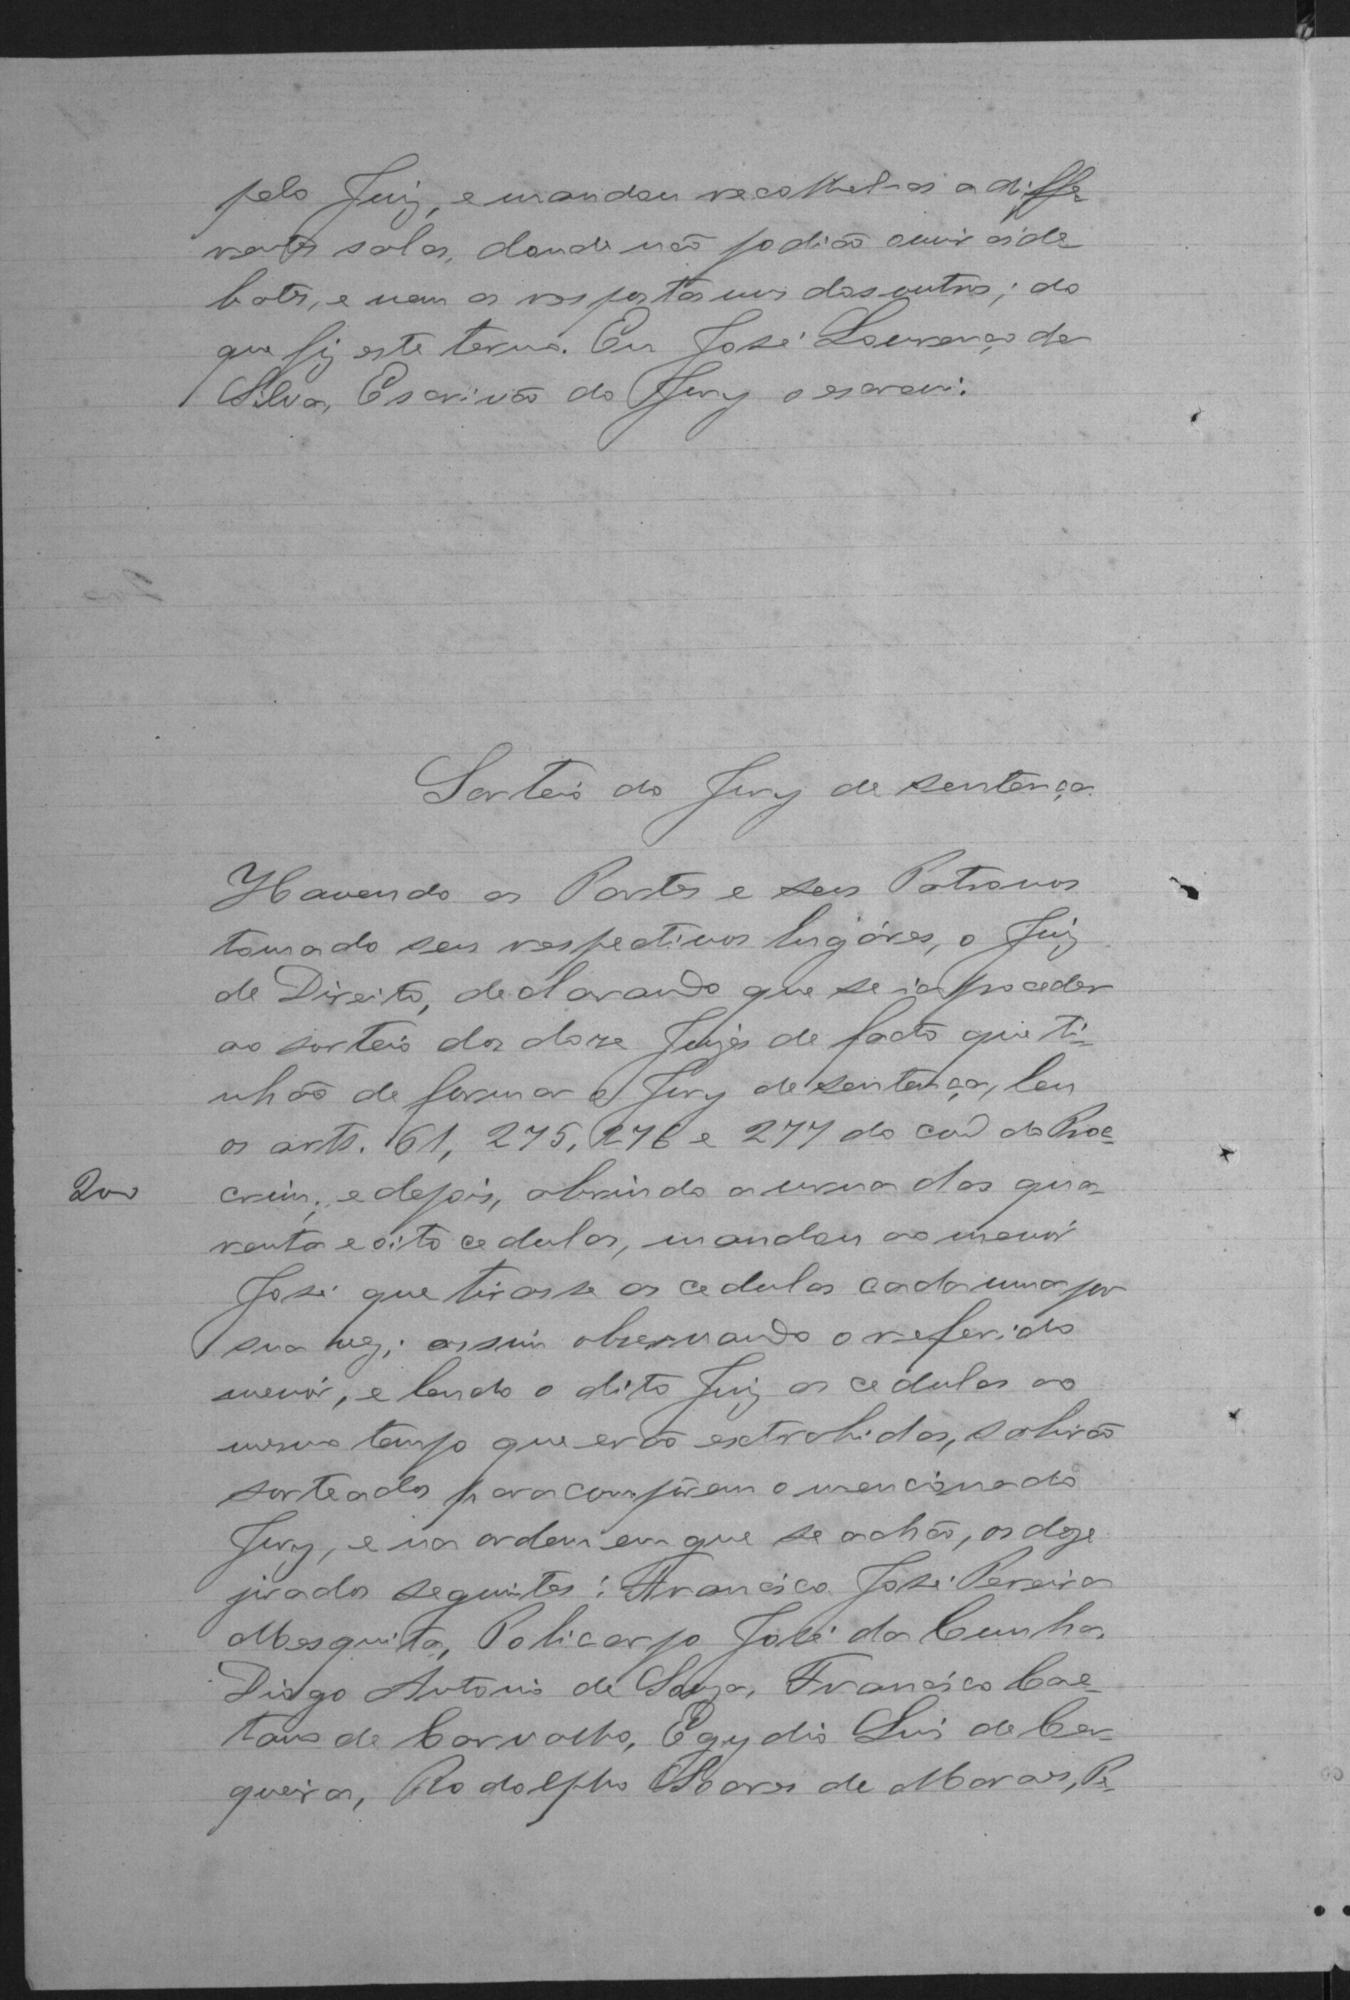 pelo Juiz, e mandou recolhel-as a diffe-
rentes salas, donde não podião ouvir os de-
bates, e nem as respostas uns dos outros; do
que fiz este termo. Eu José Lourenço da
Silva, Escrivão do Jury o escrevi.
Sorteio do Jury de sentença
Havendo as Partes e seus Patronos
tomado seus respectivos lugáres, o Juiz
de Direito, declarando que se ia proceder
ao sorteio dos doze Juizes de facto que ti-
nhão de formar o Jury de sentença, leu
os arts. 61, 275, 276 e 277 do cod do Proc
200
crim; e depois, abrindo a urna das qua-
renta e oito cedulas, mandou ao menór
José que tirasse as cedulas cada uma por
sua vez; assim observando o referido
menór, e lendo o dito Juiz as cedulas ao
mesmo tempo que erão extrahidas, sahirão
sorteados para comporem o mencionado
Jury, e na ordem em que se achão, os doze
jurados seguintes: Francisco José Pereira
Mesquita, Policarpo José da Cunha,
Diogo Antonio de Souza, Francisco Cae-
tano de Carvalho, Egydio Luis de Cer-
queira, Rodolpho Soares de Moraes, Pe-